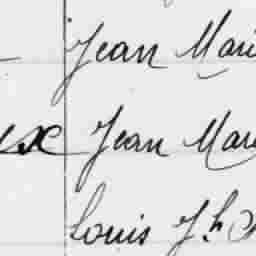 Jean Mari
ux Jean Mar
Louis Jh